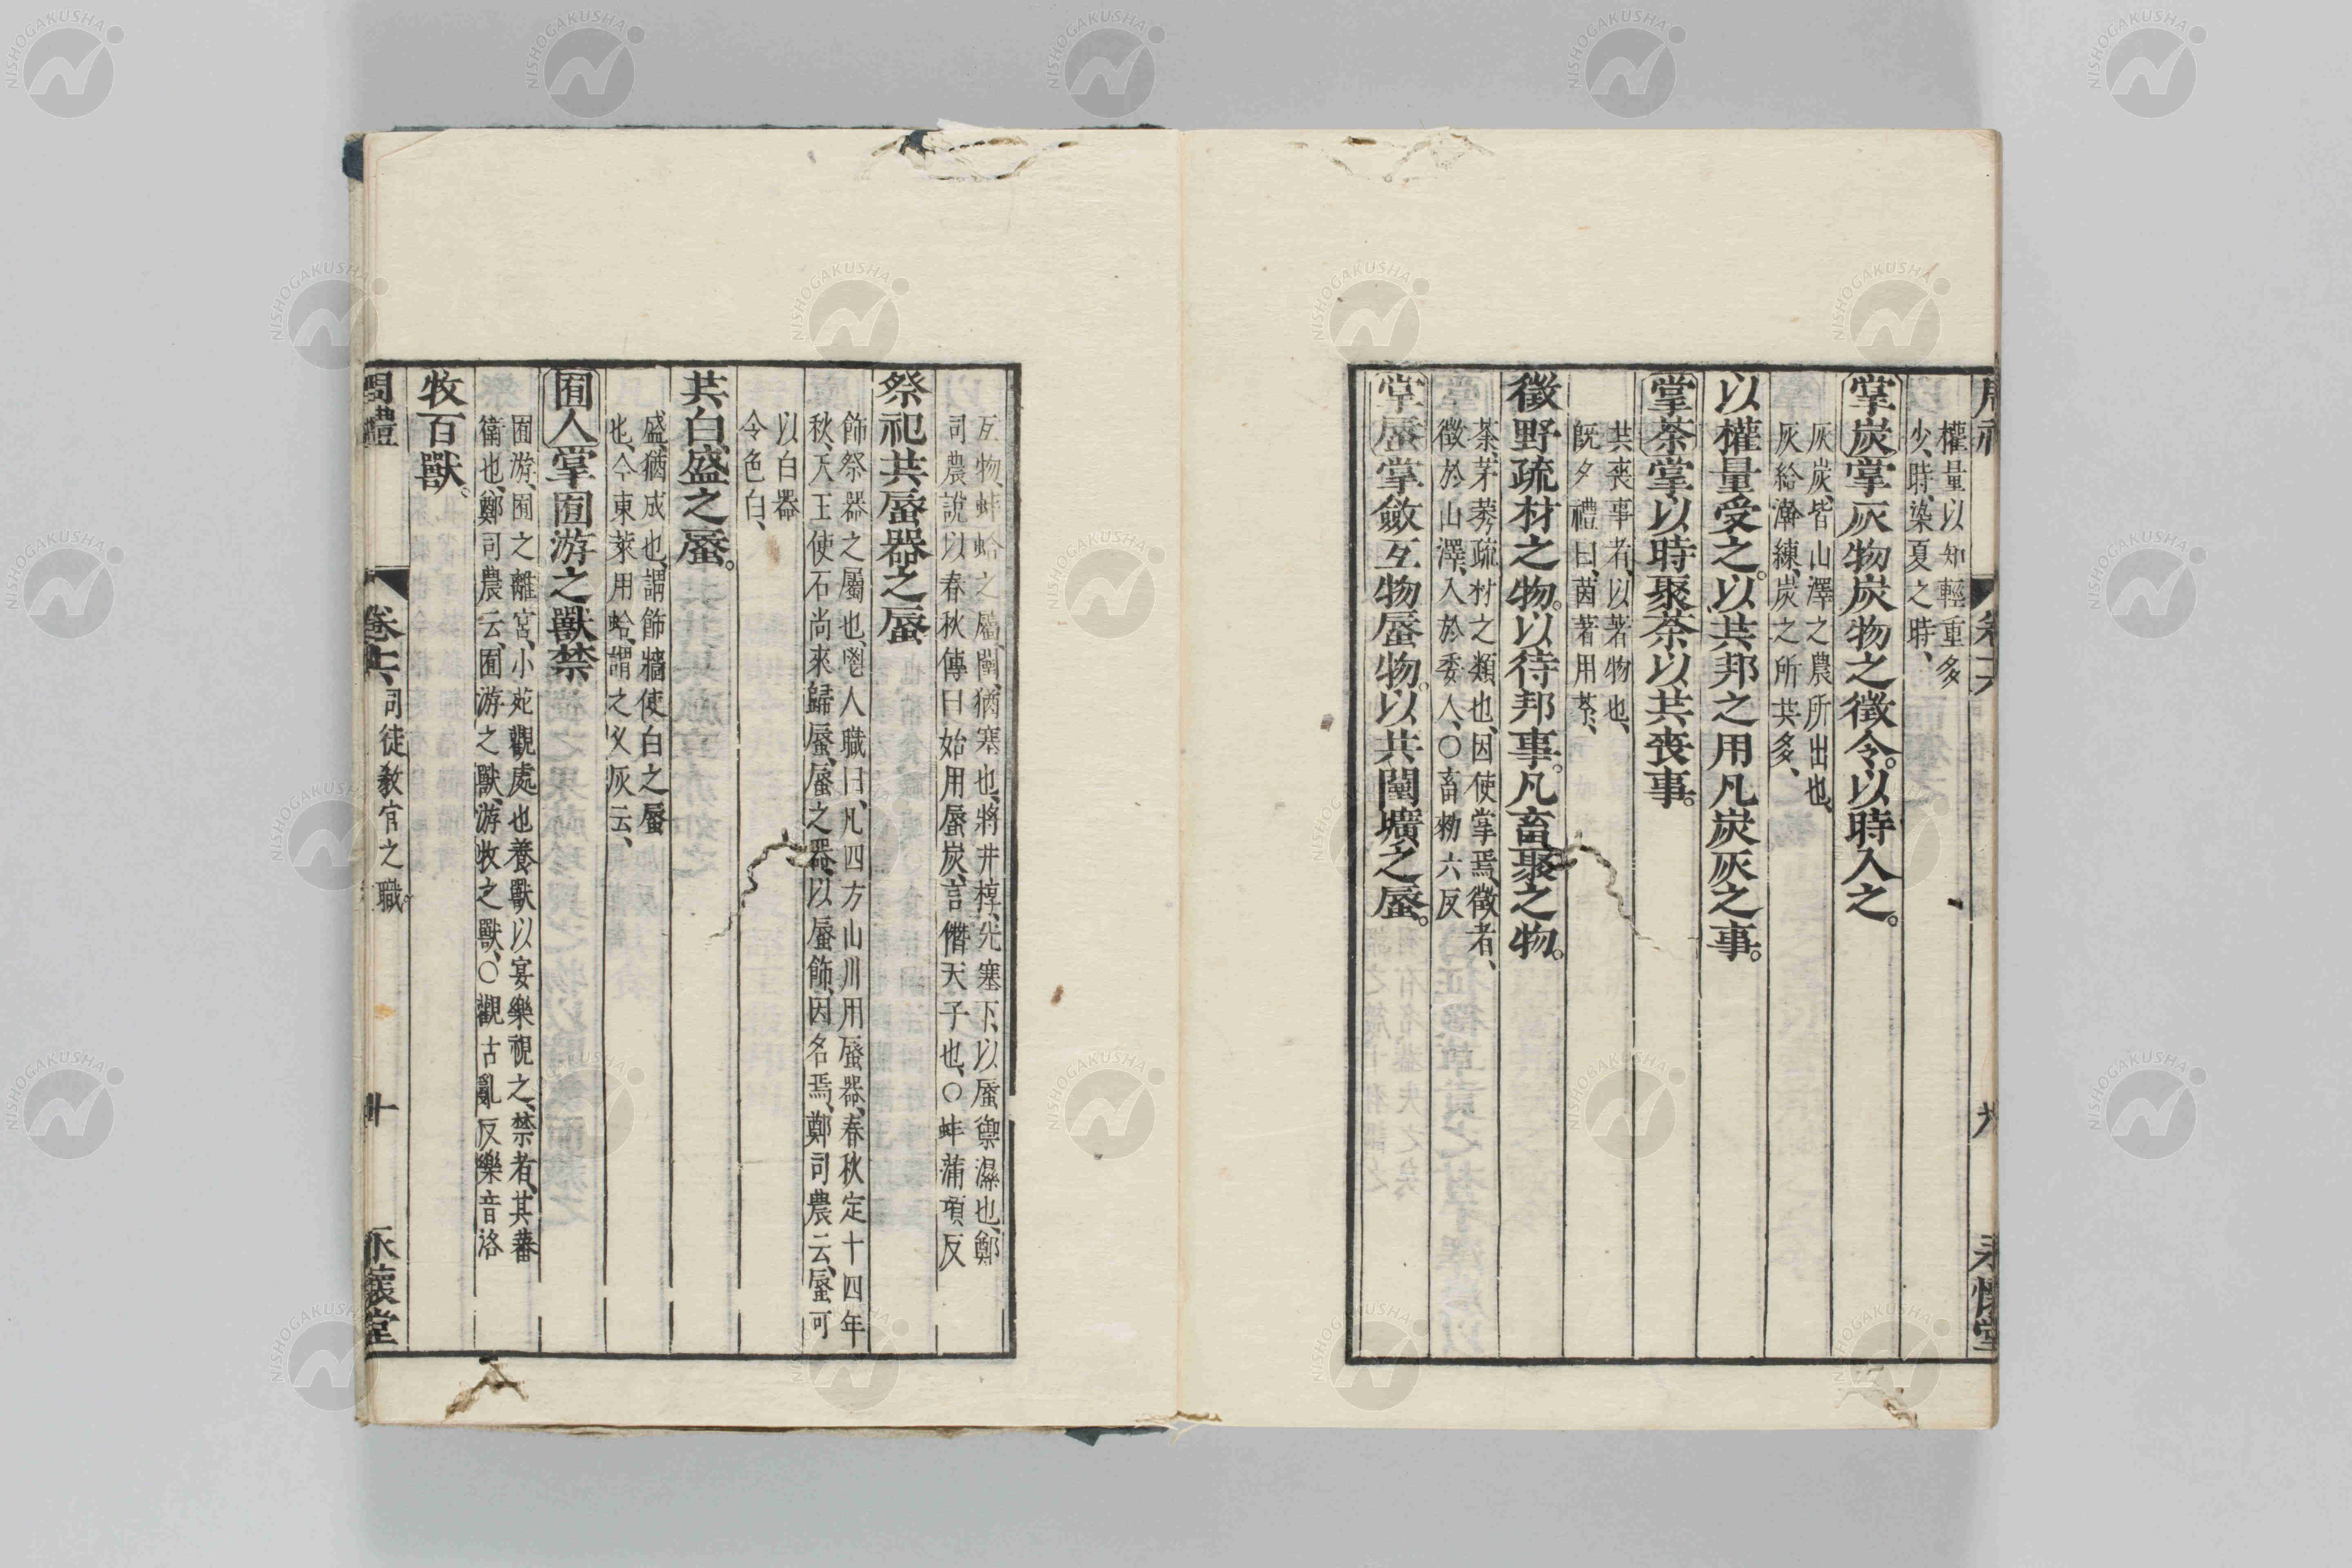 權量以知輕重多
少、時、染夏之時、
掌炭掌灰物炭物之徵令。以時入之。
灰炭、皆山澤之農所出也、
灰給澣練、炭之所共多、
以權量受之。以共邦之用凡炭灰之事。
掌荼掌以時聚荼以共喪事。
共喪事者、以著物也、
旣夕禮曰、茵著用荼、
徵野疏材之物。以待邦事。凡畜聚之物。
荼、茅莠疏材之類也、因使掌焉、徵者、
徵於山澤、入於委人、○畜勑六反
掌蜃掌斂互物蜃物。以共闉壙之蜃。
互物、蚌蛤之屬、闉、猶塞也、將井椁、先塞下、以蜃禦濕也、鄭
司農說以春秋傳曰始用蜃炭、言僭天子也、○蚌蒲項反
祭祀共蜃器之蜃
飾祭器之屬也、鬯人職曰、凡四方山川用蜃器、春秋定十四年
秋、天王使石尚來歸蜃、蜃之器、以蜃飾、因名焉、鄭司農云、蜃可
以白器
令色白、
共白盛之蜃。
盛、猶成也、謂飾牆使白之蜃
也、今東萊用蛤、謂之叉灰云、
囿人掌囿游之獸禁
囿游、囿之離宮、小苑觀處也養獸以宴樂視之、禁者、其蕃
衛也、鄭司農云、囿游之獸、游牧之獸、○觀古亂反樂音洛
牧百獸。
周禮 卷十六、司徒敎官之職。 十 永懷堂